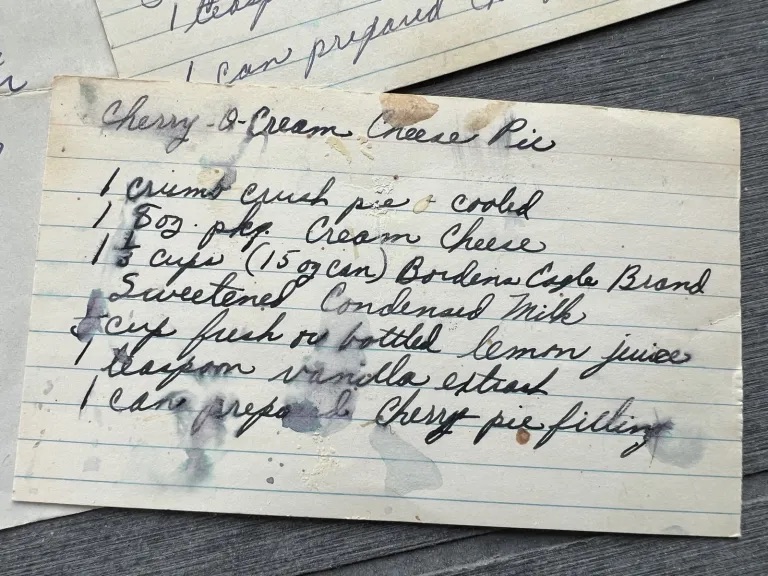 1 teasp
1 can prepared
Cherry-O-Cream Cheese Pie
1 crumb crush pie - cooled
1 8 oz. pkg. Cream Cheese
1 1/3 cups (15 oz can) Bordens Eagle Brand
Sweetened Condensed Milk
cup fresh or bottled lemon juice
1 teaspoon vanilla extract
1 can prepared Cherry pie filling